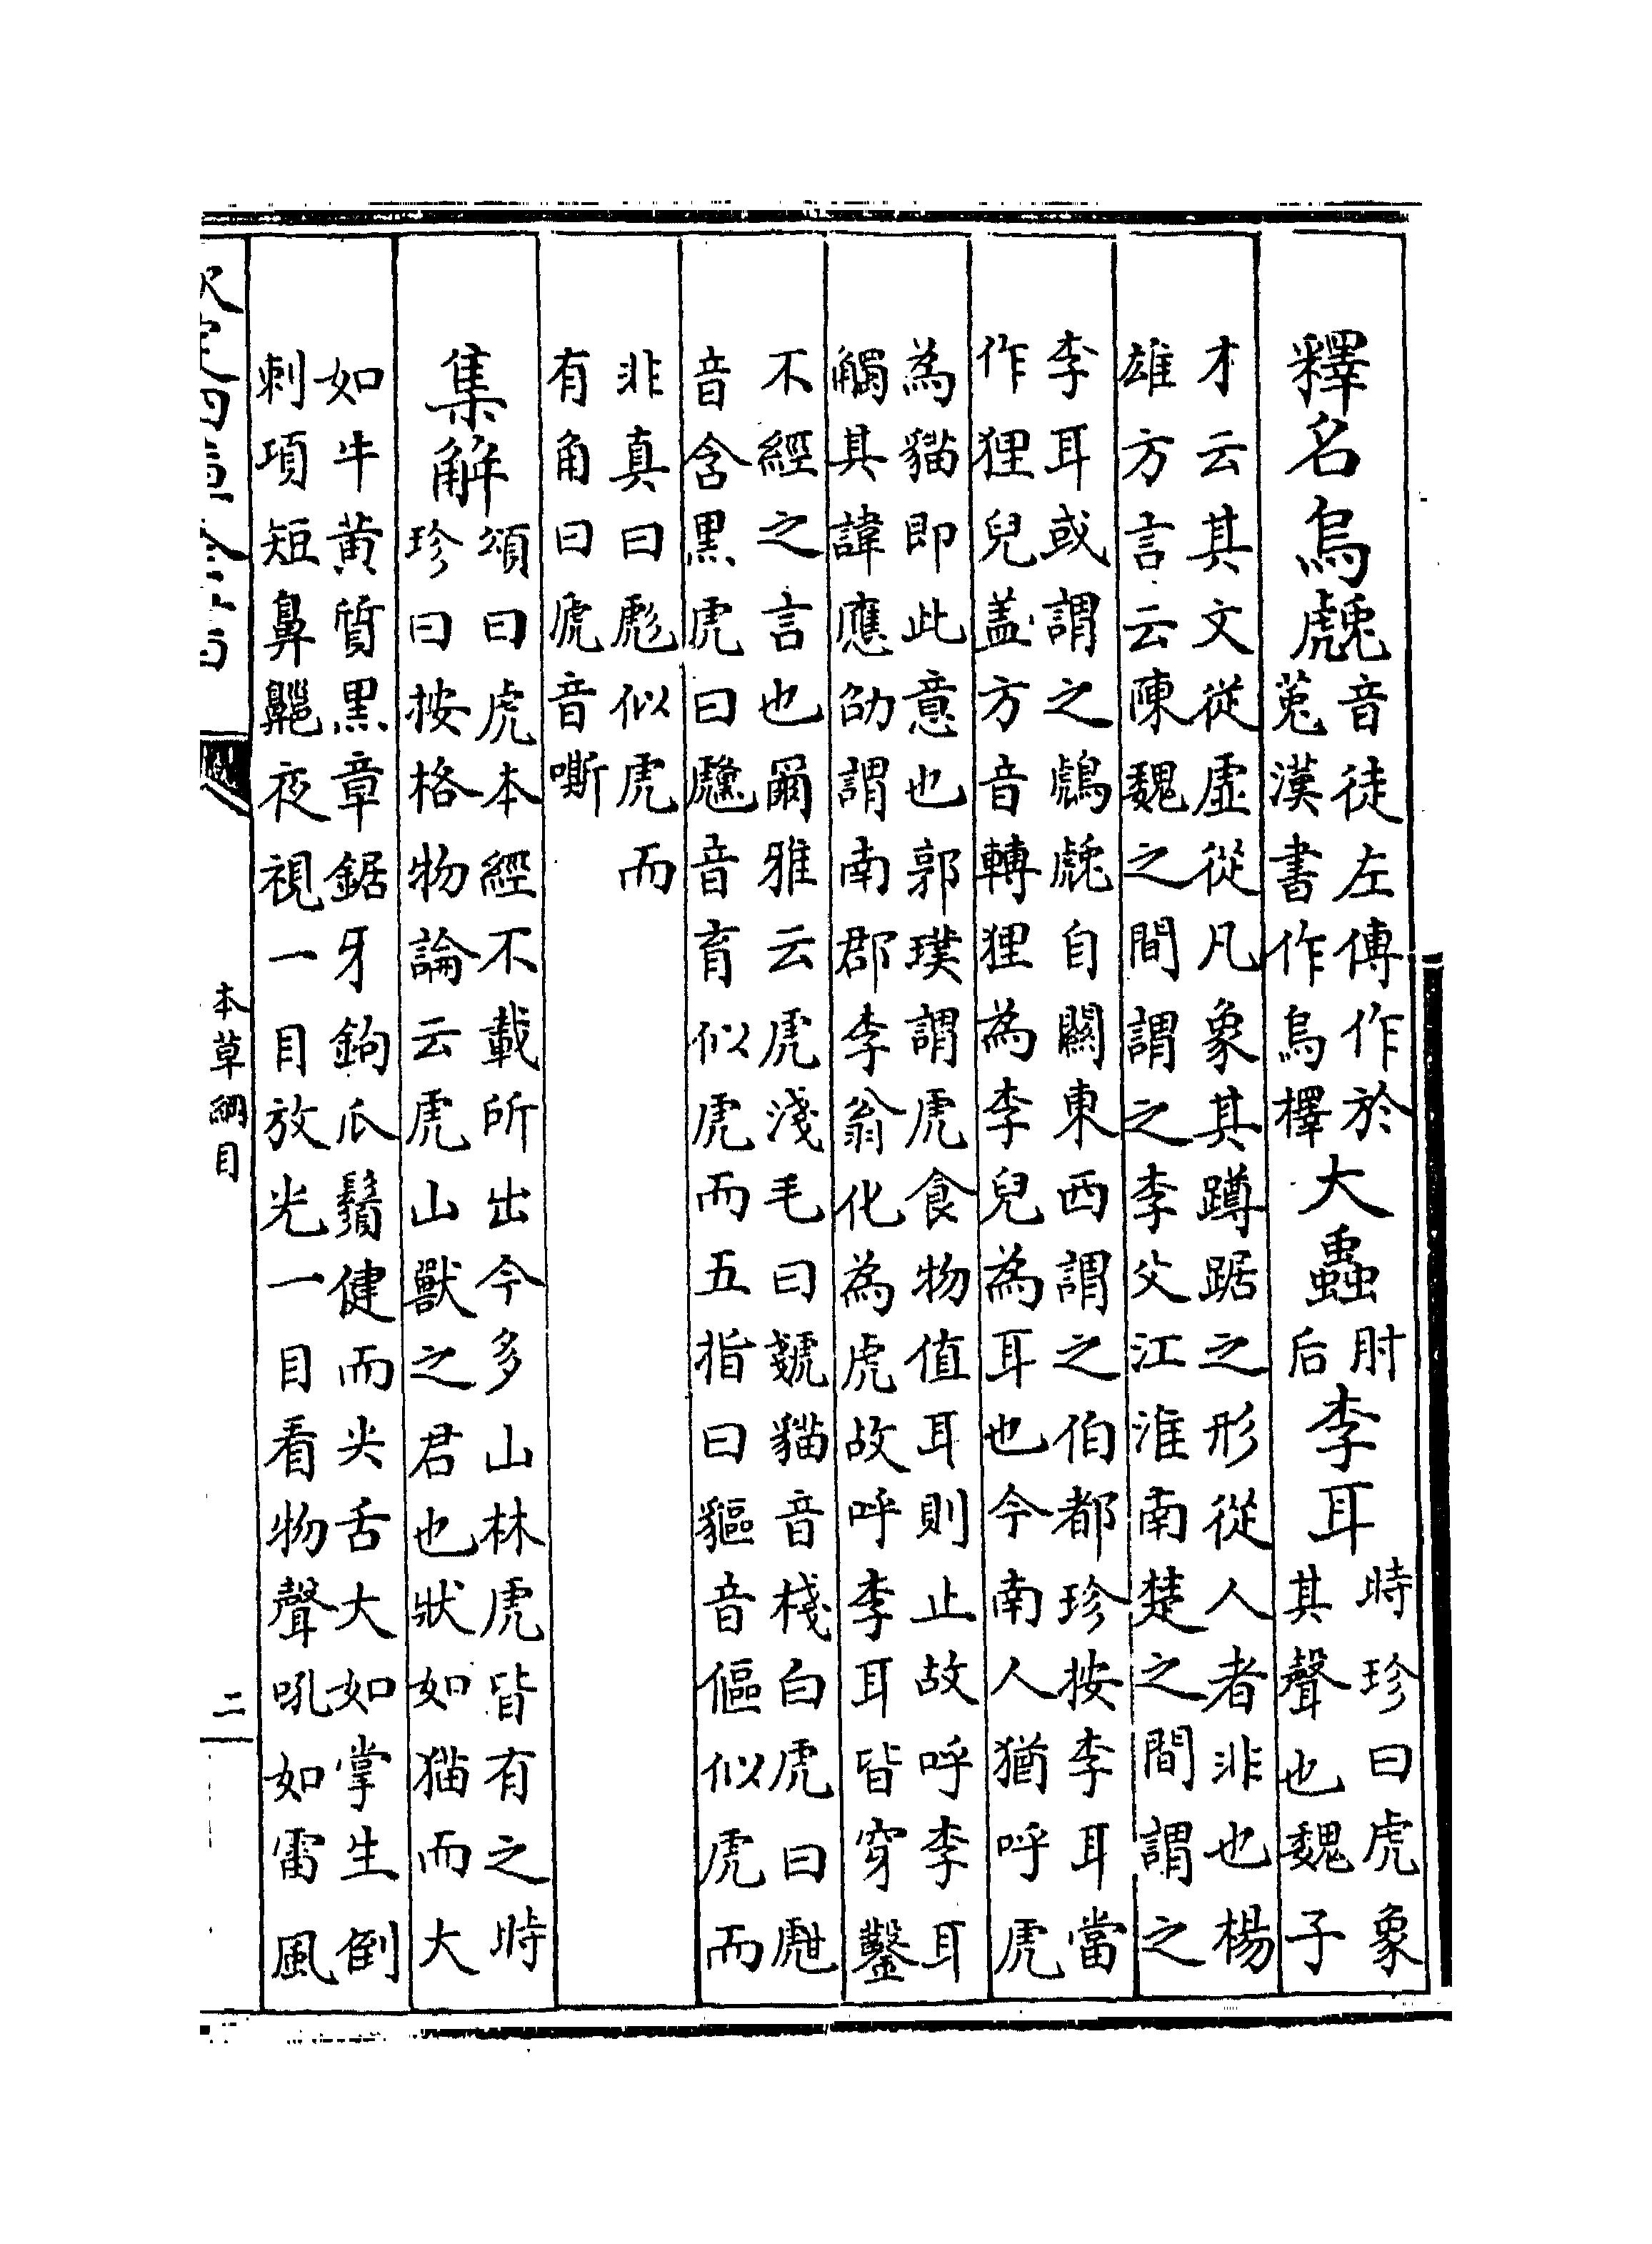 釋名烏䖘音徒左傳作於
菟漢書作烏檡
大蟲肘
后
李耳時珍曰虎象
其聲也魏子
才云其文從虛從凡象其蹲踞之形從人者非也楊
雄方言云陳魏之間謂之李父江淮南楚之間謂之
李耳或謂之䖘自關東西謂之伯都珍按李耳當
作狸兒盖方音轉狸為李兒為耳也今南人猶呼虎
為貓即此意也郭璞謂虎食物值耳則止故呼李耳
觸其諱應劭謂南郡李翁化為虎故呼李耳皆穿鑿
不經之言也爾雅云虎淺毛曰虦貓音棧白虎曰甝
音含黑虎曰虪音育似虎而五指曰貙音傴似虎而
非真曰彪似虎而
有角曰虒音嘶
集解頌曰虎本經不載所出今多山林虎皆有之時
珍曰按格物論云虎山獸之君也狀如猫而大
如牛黄質黑章鋸牙鉤爪鬚健而尖舌大如掌生倒
刺項短鼻齆夜視一目放光一目看物聲吼如雷風
本草綱目
二